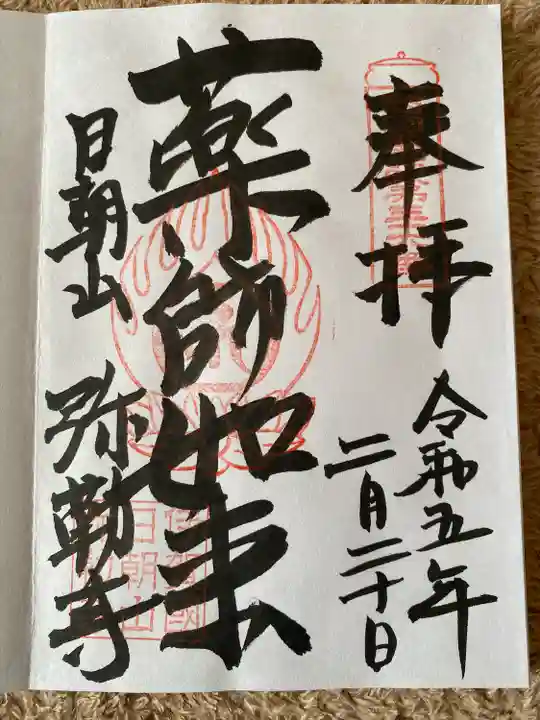 奉拝
令和五年
二月二十日
薬師如来
日朝山
弥勒寺
伊賀國
日朝山